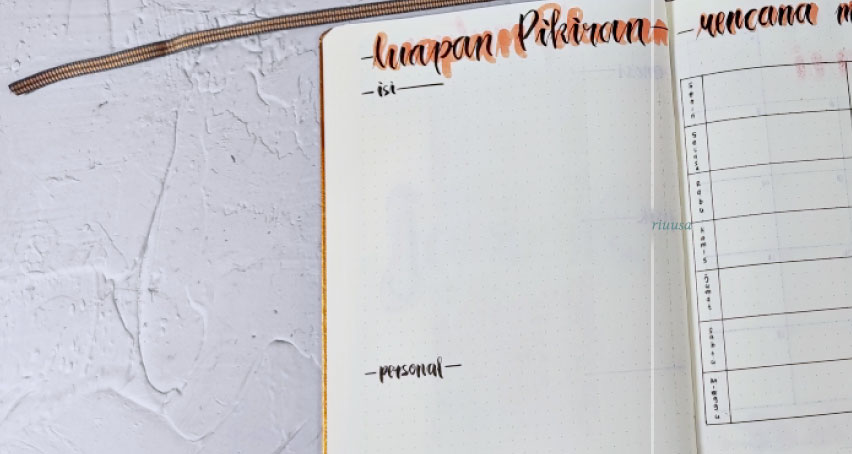 - luapan Pikiran -
- isi -
- personal -
- Rencana m
Senin
Selasa
Rabu
Kamis
Jumat
Sabtu
Minggu
riuusa